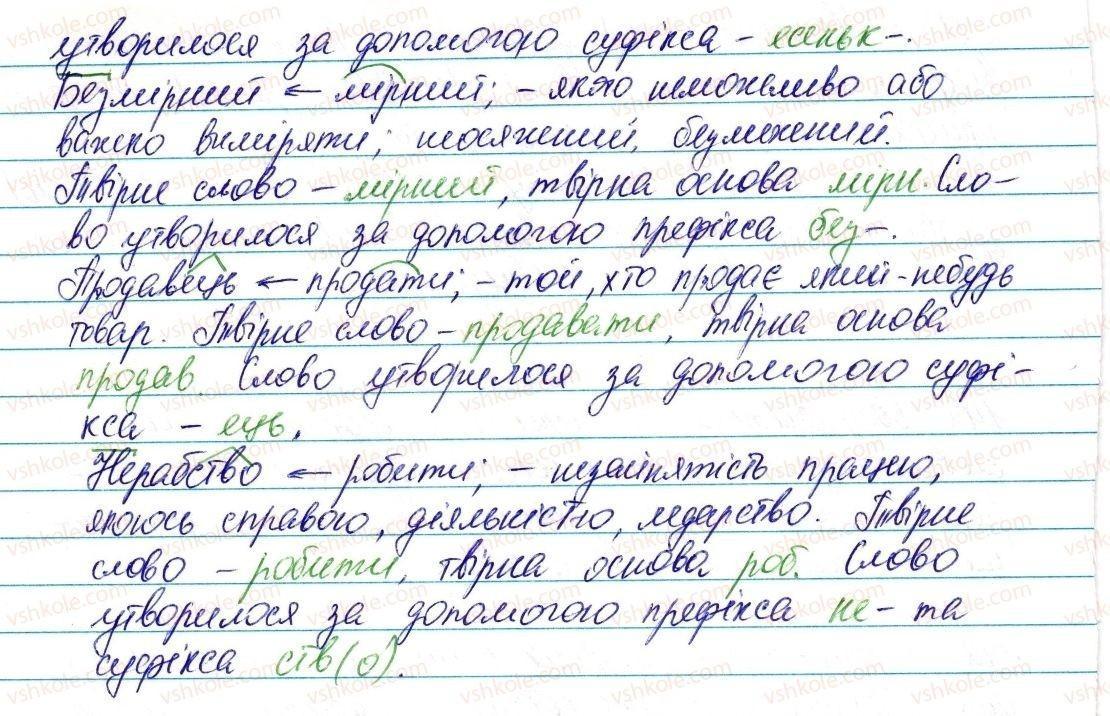 утворилося за допомогою суфікса – есеньк –.
Безмірний ← мірний; – якого неможливо або
важко виміряти; неосяжний, безмежний.
Твірне слово – мірний, твірна основа мірн. Сло–
во утворилося за допомогою префікса без–.
Продавець ← продати; – той, хто продає який-небудь
товар. Твірне слово – продавати, твірна основа
продав. Слово утворилося за допомогою суфі–
кса – ець.
Неробство ← робити; – незайнятість працею,
якоюсь справою, діяльністю, ледарство. Твірне
слово – робити, твірна основа роб. Слово
утворилося за допомогою префікса не– та
суфікса ств(о).